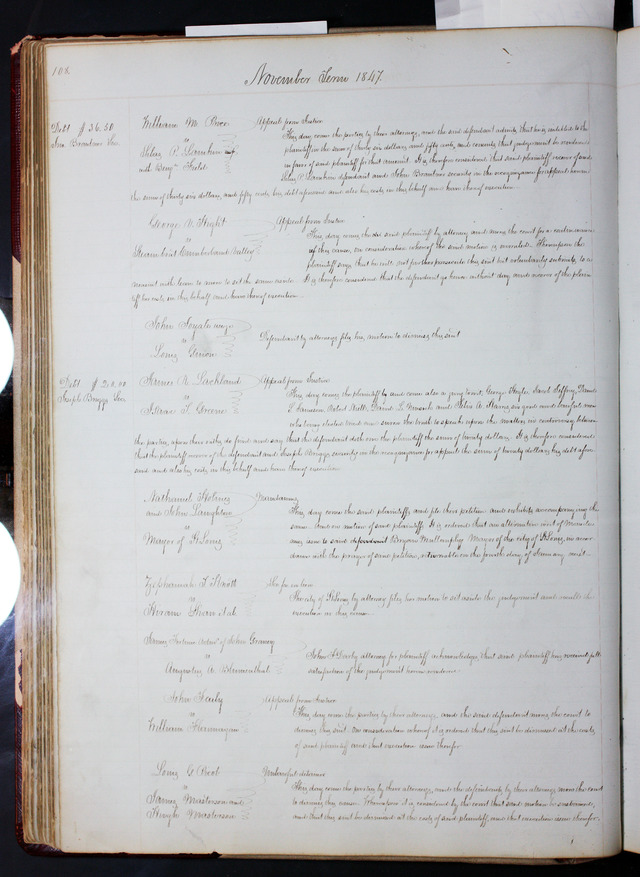 108
November Term 1847.
Debt $36.50
William M
Appeal from Justice
This day come the parties by their attorneys, and the said defendant admits that he is indebted to the
plaintiff in the sum of thirty six dollars and fifty cents, and consents that judgement be rendered
in favor of said plaintiff for that amount. It is therefore considered that said plaintiff recover of said
defendant and John security in the recognizance for appeal herein
the sum of thirty six dollars, and fifty cents his debt aforesaid and also his costs in this behalf and have thereof execution.
George W. Hight
vs
Steamboat Cumberland Valley
Appeal from Justice
This day comes the said plaintiff by attorney and moves the court for a continuance
of this cause, on consideration whereof the said motion is overruled. Thereupon the
plaintiff says that he will not further prosecute his suit but voluntarily submits to a
nonsuit with leave to move to set the same aside. It is therefore considered that the defendant go hence without day and recover of the plain
tiff his costs in this behalf and have thereof execution.
John
vs
Louis
Defendant by attorney files his motion to dismiss this suit
Debt $20.00
Joseph Briggs
James A. Lackland
vs
Isaac T. Greene
Appeal from Justice
This day comes the plaintiff and come also a jury to wit, George
L. Garrison, Robert and good and lawful men
who being elected tried and sworn the truth to speak upon the matters in controversy between
the parties, upon their oaths, do find and say that the defendant doth owe the plaintiff the sum of twenty dollars. It is therefore considered
that the plaintiff recover of the defendant and Joseph Briggs security in the recognizance for appeal the sum of twenty dollars his debt afore
said and also his costs in this behalf and have thereof execution.
Nathaniel Holmes
and John Laughlin
vs
Mayor of St Louis
Mandamus
This day come the said plaintiffs and file their petition and exhibits accompanying the
same. And on motion of said plaintiffs It is ordered that an alternative writ of Manda
mus issue to said defendant Bryan Mullanphy Mayor of the city of St Louis, in accor
dance with the prayer of said petition, returnable on the fourth day of January next.
Zephaniah
vs
Hiram et al.
The city of St Louis by attorney files her motion to set aside the judgement and
execution in this cause.
James of John
vs
Augustus A. Blumenthal
John F. Darby attorney for plaintiff acknowledges, that said plaintiff has received full
satisfaction of the judgement herein rendered.
John
vs
William
Appeal from Justice
This day come the parties by their attorneys, and the said defendant moves the court to
dismiss this suit. On consideration whereof It is ordered that this suit be dismissed at the costs
of said plaintiff and that execution issue therefor.
Louis C.
vs
James Masterson and
Hugh Masterson
Unlawful detainer
This day come the parties by their attorneys, and the defendants by their attorney move the court
to dismiss this cause. Whereupon it is considered by the court that said motion be sustained,
and that this suit be dismissed at the costs of said plaintiff, and that execution issue therefor.